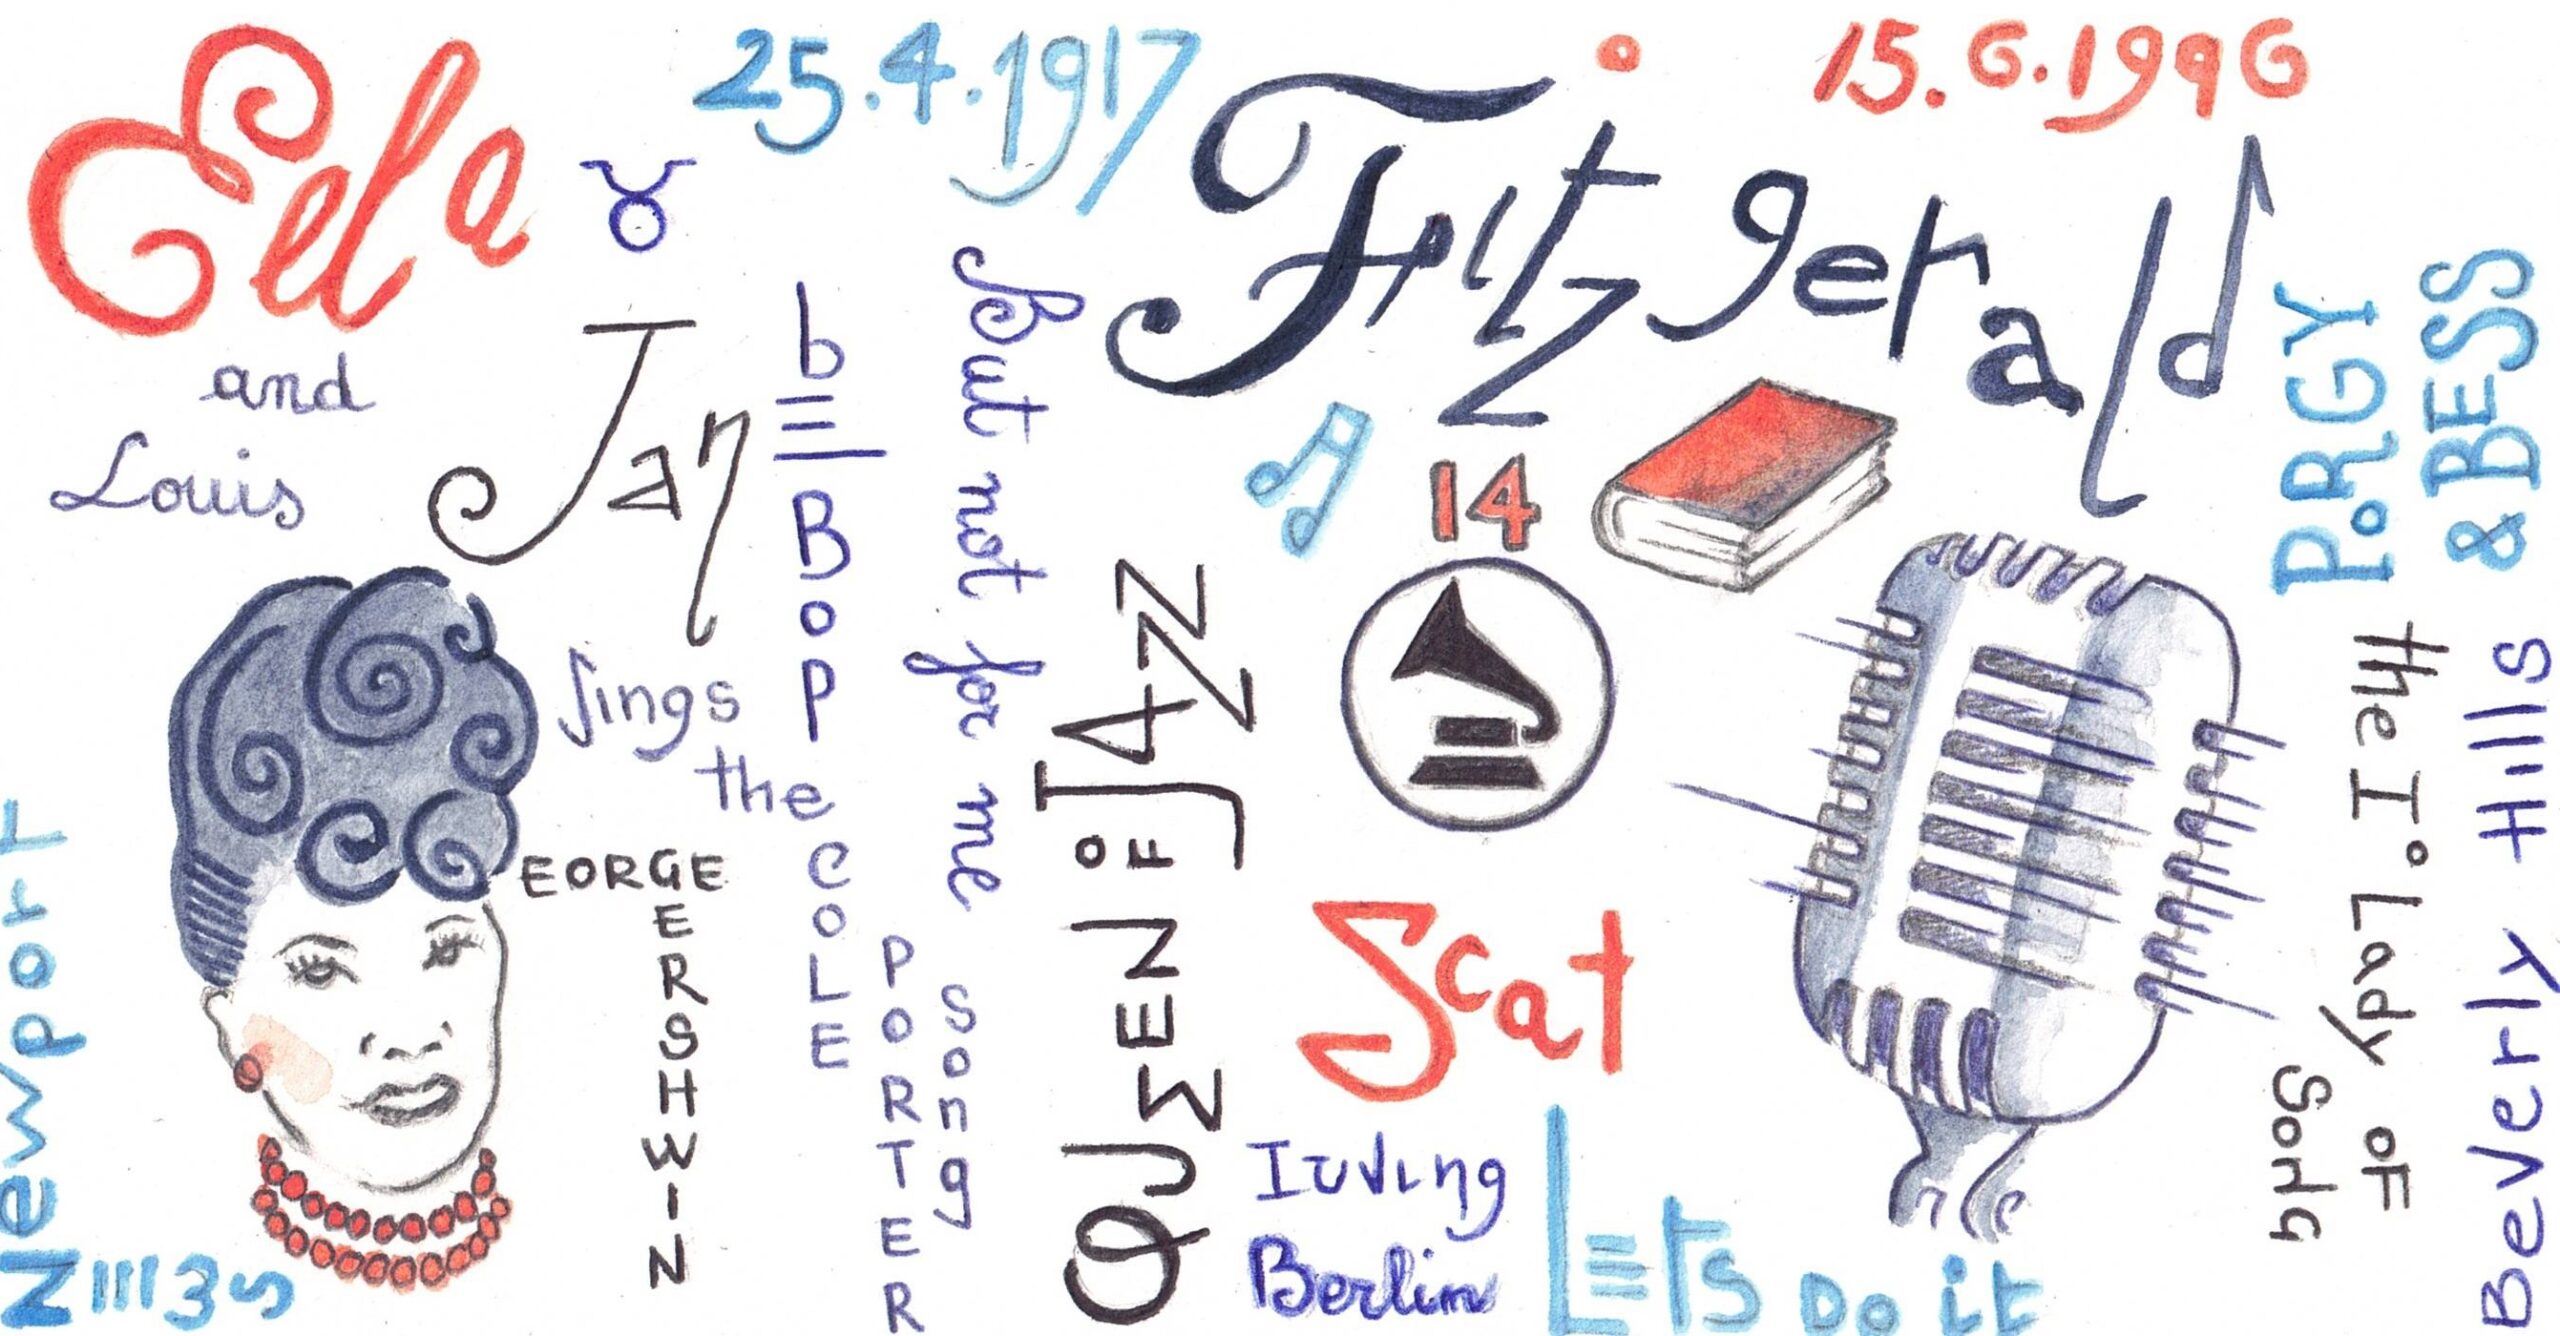 Ella
25.4.1917
Fitzgerald
15.6.1996
and
Louis
Jan
bE BoP
But not for me
PoRGY
& BESS
14
sings
the
COLE
PORTER
song
GEORGE
GERSHWIN
QUEEN oF JAZZ
Scat
the I° Lady oF
Song
Beverly Hills
Newport
NEWS
Irving
Berlin
LETs Do it